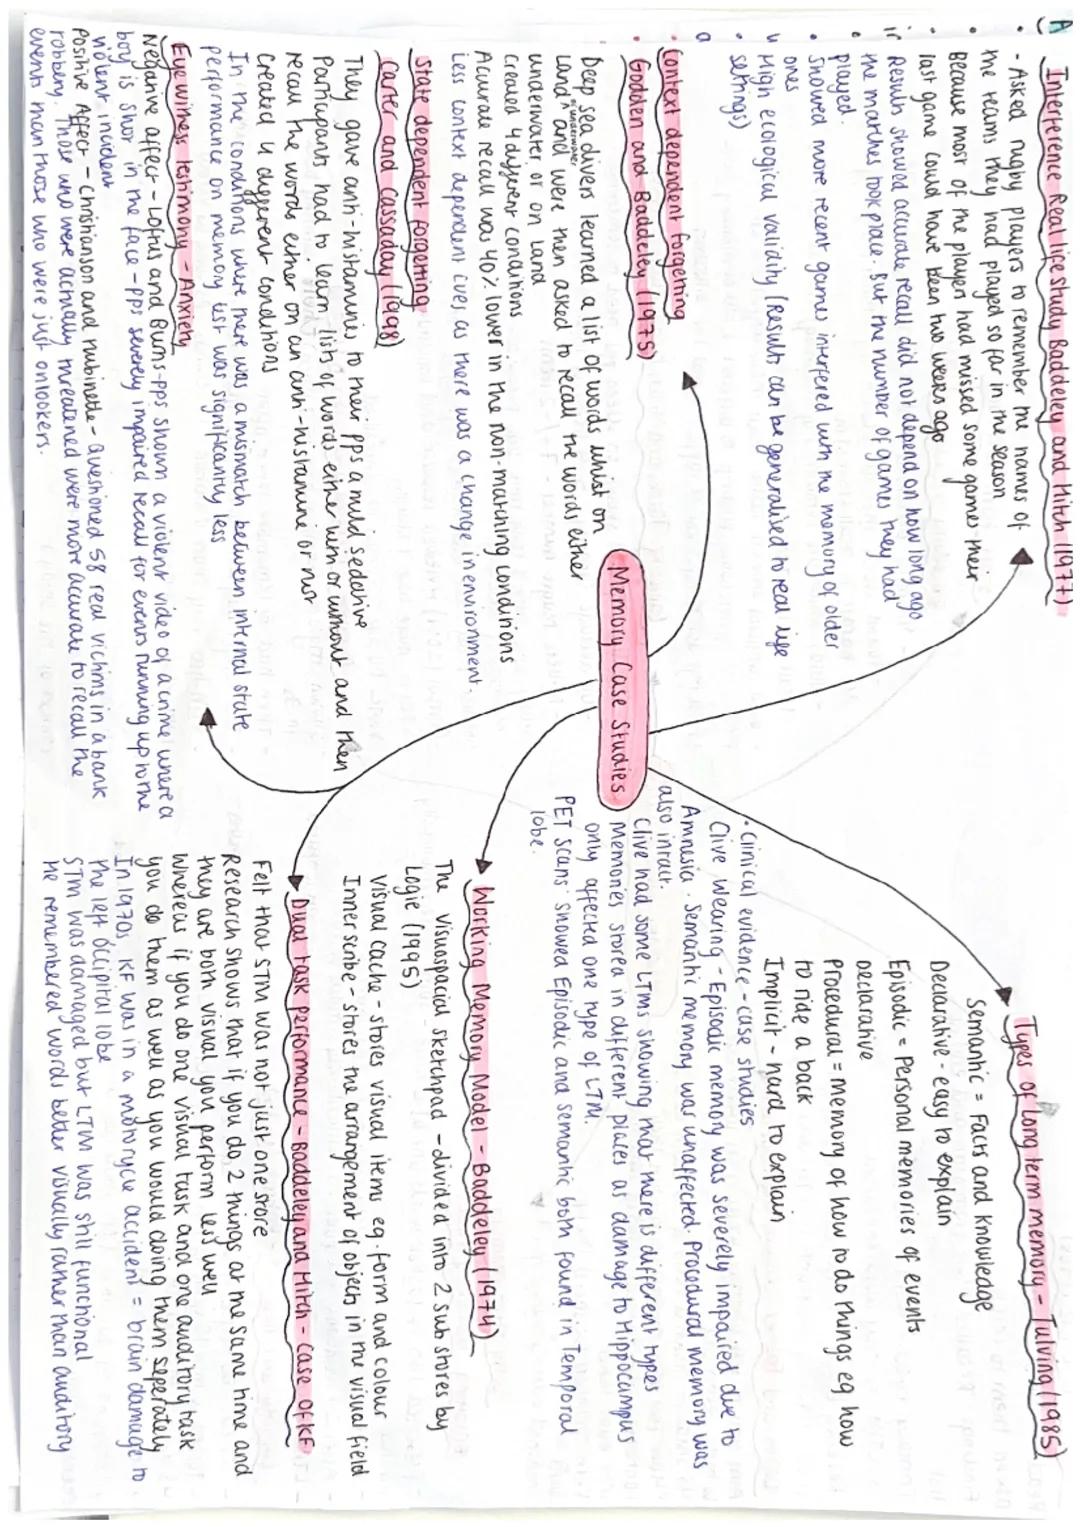 Memory Case Studies
Interference Real life study Baddeley and Hitch (1977)
- Asked rugby players to remember the names of
the teams they had played so far in the season
Because most of the players had missed some games their
last game could have been two weeks ago
Results showed accurate recall did not depend on how long ago
the matches took place. But the number of games they had
played.
Showed more recent games interfered with the memory of older
ones
High ecological validity (Results can be generalised to real life
settings)
Context dependent forgetting
Godden and Baddeley (1975)
Deep sea divers learned a list of words whilst on
land "underwater" and were then asked to recall the words either
underwater or on Land
Created 4 different conditions
Acurate recall was 40% lower in the non-matching conditions
Less context dependent cues as there was a change in environment.
State dependent forgetting
Carter and Cassaday (1998)
They gave anti-histamines to their pps a mild sedative
Participants had to learn lists of words either with or without and then
recall the words either on an anti-histamine or not
Created 4 different conditions
In the conditions where there was a mismatch between internal state
performance on memory test was significantly less
Eye witness testimony - Anxiety
Negative affect - Loftus and Burns - pps shown a violent video of a crime where a
boy is shot in the face - pps severely impaired recall for events running up to the
violent incident
Positive Affect - Christianson and Hubinette - questioned 58 real victims in a bank
robbery. Those who were actually threatened were more accurate to recall the
events than those who were just onlookers.
Types of long term memory - Tulving (1985)
Semantic = Facts and knowledge
Declarative - easy to explain
Episodic = Personal memories of events
Declarative
Procedural = memory of how to do things eg how
to ride a back
Implicit - hard to explain
• Clinical evidence - case studies
Clive Wearing - Episodic memory was severely impaired due to
Amnesia. Semantic memory was unaffected. Procedural memory was
also intact.
Clive had some LTMs showing that there is different types
Memories stored in different places as damage to Hippocampus
only affected one type of LTM.
PET scans showed Episodic and semantic both found in Temporal
lobe.
Working Memory Model - Baddeley (1974)
The visuospacial sketchpad - divided into 2 sub stores by
Logie (1995)
Visual cache - stores visual items eg. form and colour
Inner scribe - stores the arrangement of objects in the visual field
Dual task performance - Baddeley and Hitch - case of KF
Felt that STM was not just one store
Research shows that if you do 2 things at the same time and
they are both visual you perform less well
Whereas if you do one visual task and one auditory task
you do them as well as you would doing them seperately
In 1970s KF was in a motorycle accident = brain damage to
the left occipital lobe
STM was damaged but LTM was still functional
He remembered words better visually rather than auditory